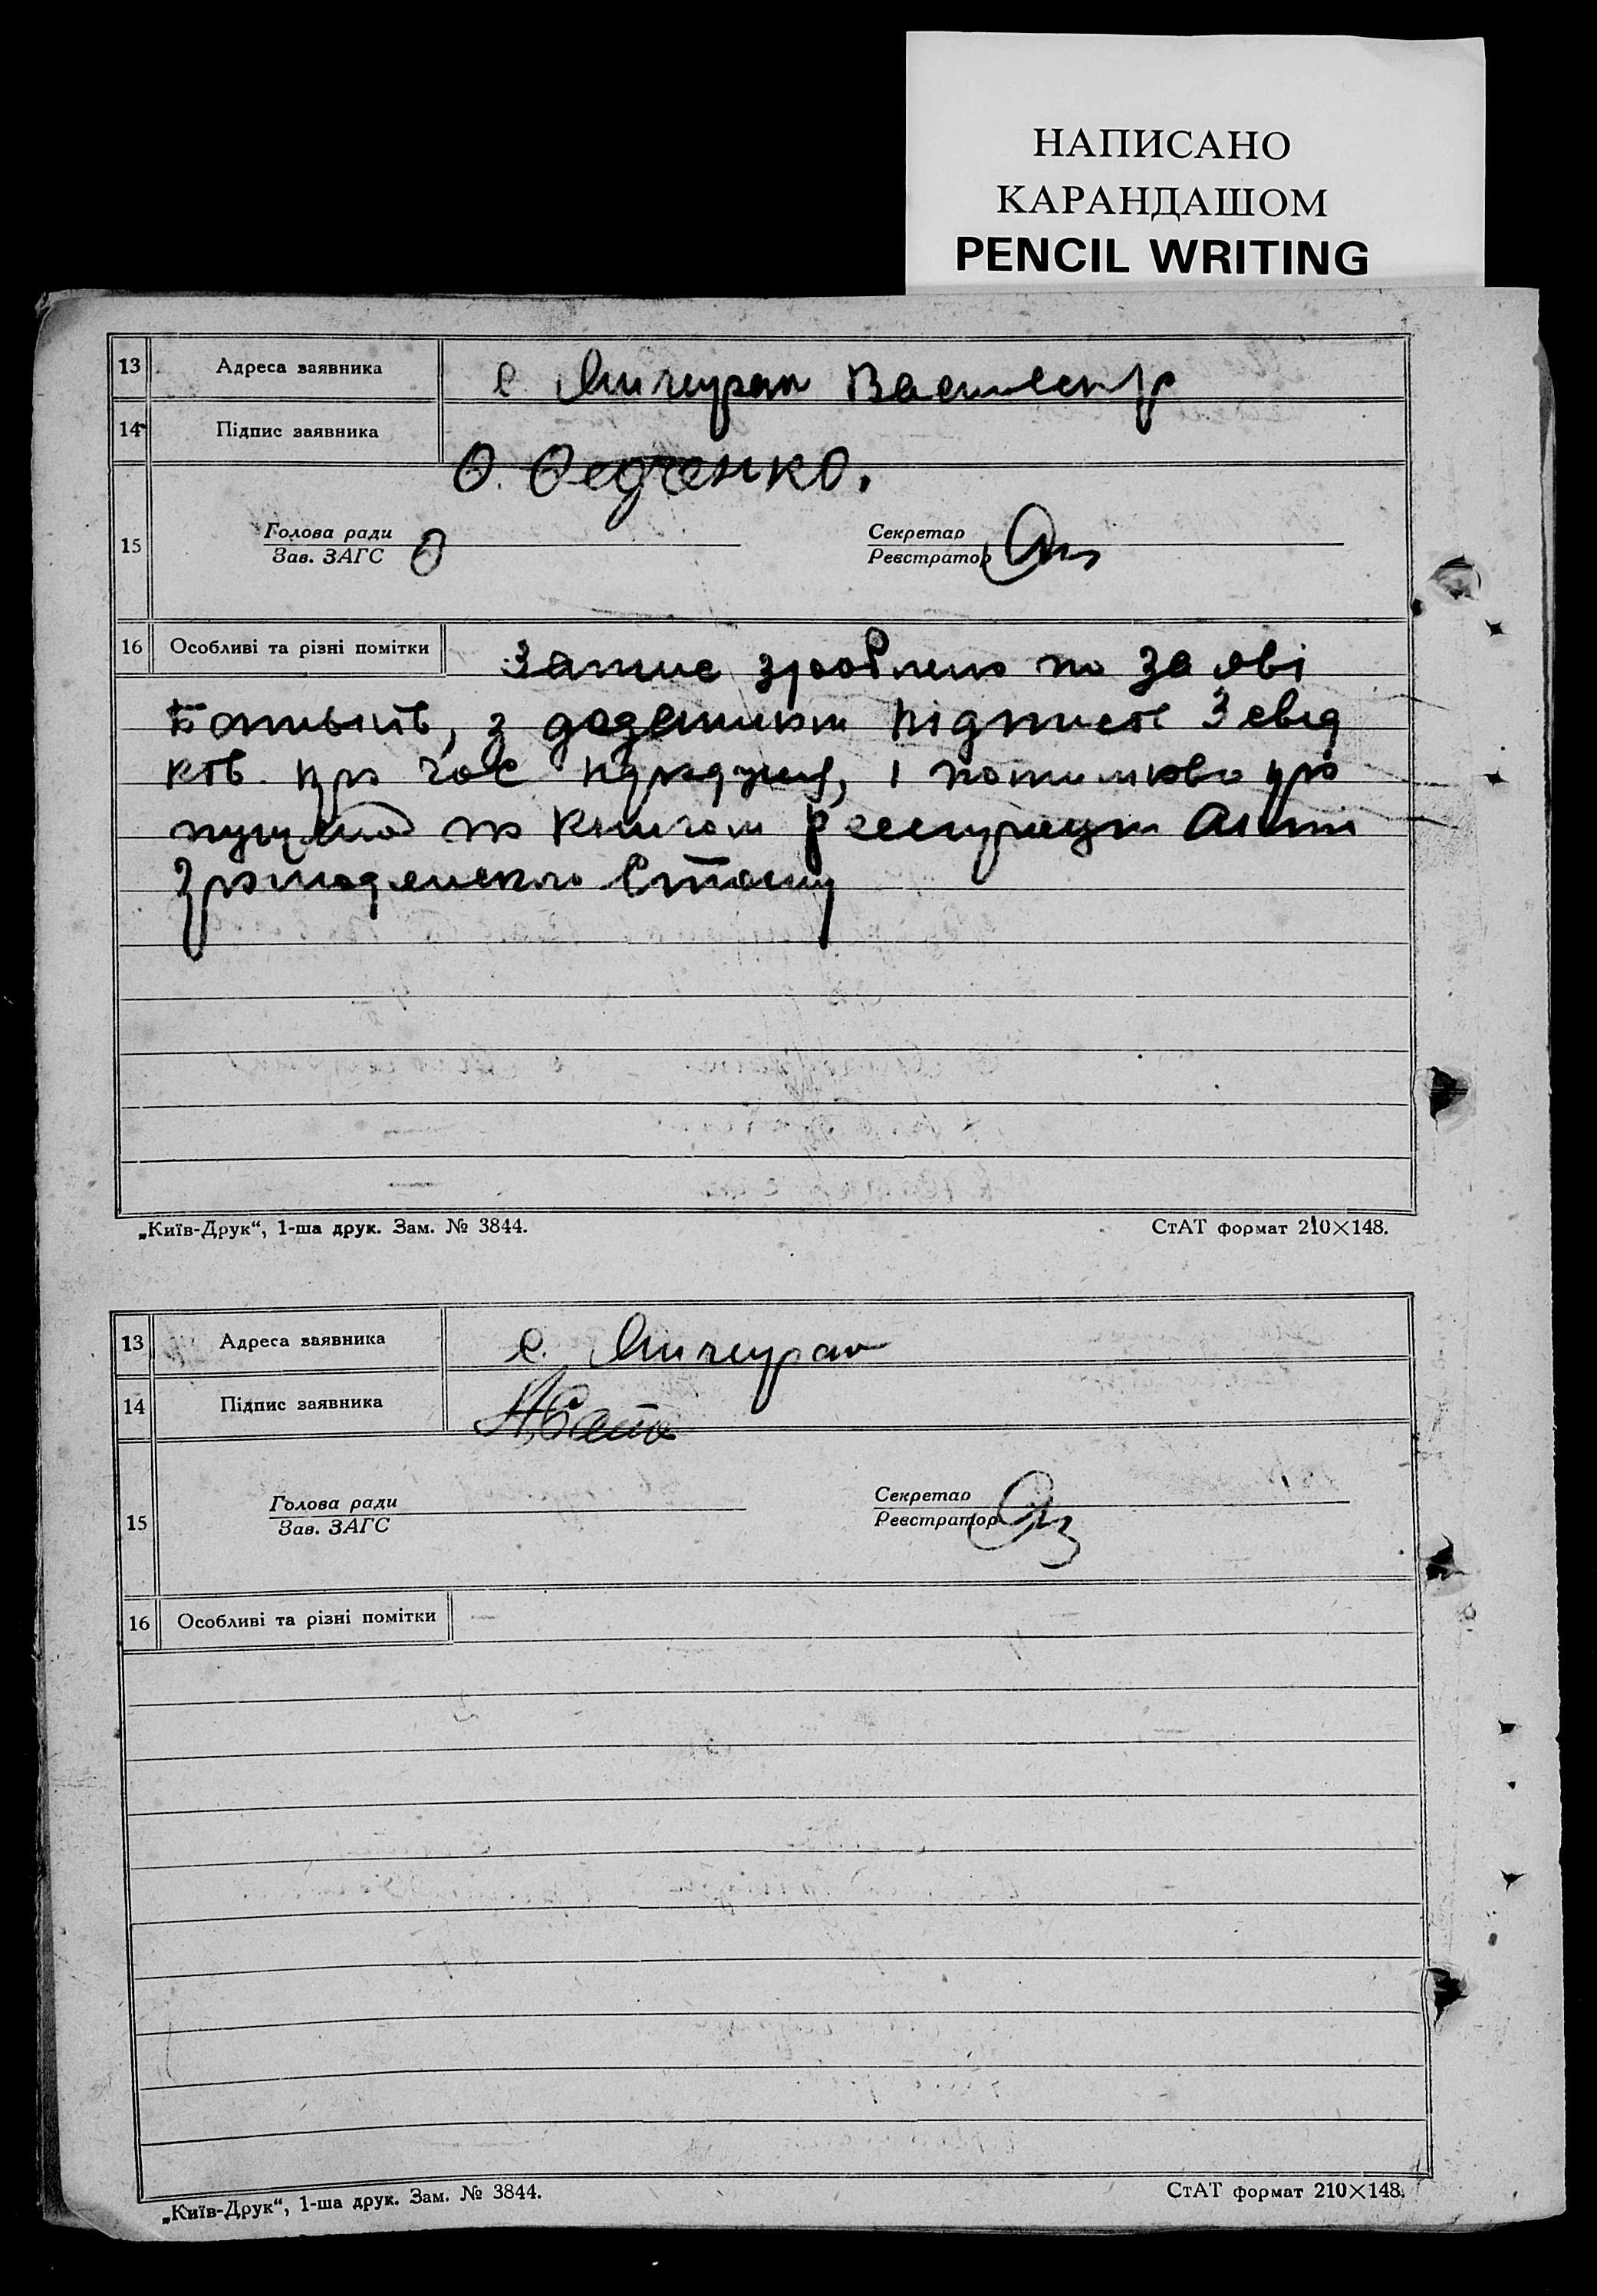 НАПИСАНО
КАРАНДАШОМ
PENCIL WRITING
13 Адреса заявника с.
14 Підпис заявника
О. Федченко.
15 Голова ради Секретар
Зав. ЗАГС Реєстратор
16 Особливі та різні помітки Запис зроблено по заяві
з підписів 3 свід
ків про час і помилково про
пущено по книгам Реєстрацїи Актів
Громадянського Стану
„Київ-Друк“, 1-ша друк. Зам. № 3844. СтАТ формат 210×148.
13 Адреса заявника с.
14 Підпис заявника
15 Голова ради Секретар
Зав. ЗАГС Реєстратор
16 Особливі та різні помітки
„Київ-Друк“, 1-ша друк. Зам. № 3844. СтАТ формат 210×148.